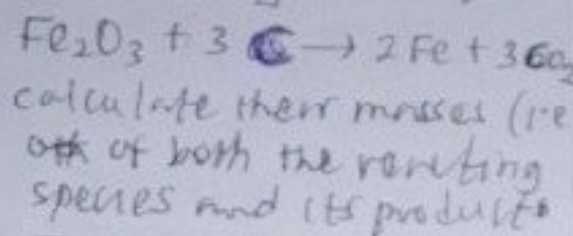 Fe₂O₃ + 3 C → 2 Fe + 3CO₂
calculate their masses (i.e
of both the reacting
species and its products